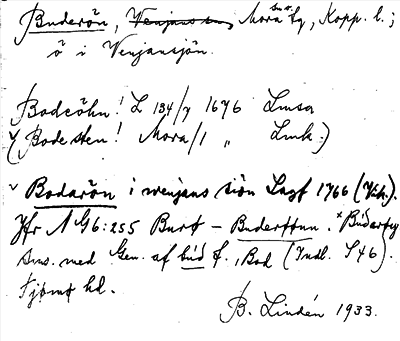 Buderön, Venjans sn, Mora sn o. fg, Kopp. l.;
ö i Venjansjön.
Bodeöhn! L 134/7 1676 Lmsa
(Bodesten! Mora/1 „ Lmk.)
Bodarön i wenjans siön Lagf 1766 (Vik.).
Jfr NG 6:255 Burt – Buderttun. *Buderty
Sms. med Gen. af búd f. , Bod (Indl. S 46).
Tjömt hd.
B. Lindén 1933.